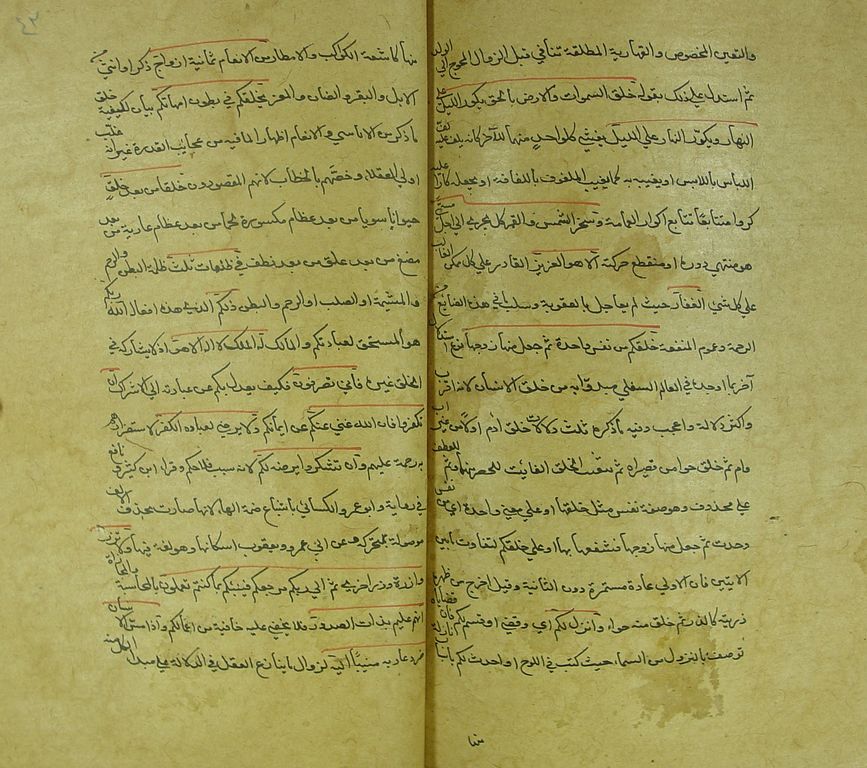 والتعين المخصوص والقهارية المطلقة تنافي قبل الزوال المحوج الي الولد
ثم استدل علي ذلك بقوله خلق السموات والارض بالحق يكور الليل علي
النهار ويكور النهار علي الليل يغشي كل واحد منهما الاخر كانه يلف عليه لف
اللباس باللابس او يغيبه به كما يغيب الملفوف باللفافة او يجعله كارا عليه
كرورا متتابعا تتابع اكوار العمامة وسخر الشمس والقمر كل يجري الي اجل مسمي
هو منتهي دوره او منقطع حركته الا هو العزيز القادر علي كل ممكن الغالب
علي كل شئ الغفار حيث لم يعاجل بالعقوبة وسلب ما في هذه الصنائع من
الرحمة وعموم المنفعة خلقكم من نفس واحدة ثم جعل منها زوجها نوع استدلال
آخر بما اوجده في العالم السفلي مبدوا به من خلق الانسان لانه اقرب
واكثر دلالة واعجب وفيه ما ذكره ثلث دلالات خلق ادم اولا من غير اب
وام ثم خلق حوا من قصيراه ثم تشعيب الخلق الفائت للحصر منهما وثم للعطف
علي محذوف وهو صفة نفس مثل خلقها او علي معني واحدة اي من نفس
وحدت ثم جعل منها زوجها فشفعها بها او علي خلقكم لتفاوت ما بين
الايتين فان الاولي عادة مستمرة دون الثانية وقيل اخرج من ظهره
ذريته كالذر ثم خلق منه حواء وانزل لكم اي وقضي او قسم لكم فان قضاياه
توصف بالنزول من السماء حيث كتب في اللوح او احدث لكم باسباب نازلة
منها
منها كاشعة الكواكب والامطار من الانعام ثمانية ازواج ذكرا وانثي من
الابل والبقر والضان والمعز يخلقكم في بطون امهاتكم بيان لكيفية خلق
ما ذكر من الاناسي والانعام اظهارا لما فيه من عجايب القدرة غير انه غلب
اولي العقل او خصهم بالخطاب لانهم المقصودون خلقا من بعد خلق
حيوانا سويا من بعد عظام مكسورة لحما من بعد عظام عارية من بعد
مضغ من بعد علق من بعد نطف في ظلمات ثلث ظلمة البطن والرحم
والمشيمة او الصلب والرحم والبطن ذلكم الذي هذه افعاله الله ربكم
هو المستحق لعبادتكم والمالك له الملك لا اله الا هو اذ لا يشاركه في
الخلق غيره فاني تصرفون فكيف يعدل بكم عن عبادته الي الاشراك ان
تكفروا فان الله غني عنكم عن ايمانكم ولا يرضي لعباده الكفر لاستضرارهم
به رحمة عليهم وان تشكروا يرضه لكم لانه سبب فلاحكم وقرا ابن كثير ونافع
في رواية وابو عمرو والكسائي باشباع ضمة الهاء لانها صارت بحذف الالف
موصولة بمتحرك وعن ابي عمرو ويعقوب اسكانها وهو لغة فيها ولا تزر
وازرة وزر اخري ثم الي ربكم مرجعكم فينبئكم بما كنتم تعملون بالمحاسبة والمجازاة
انه عليم بذات الصدور فلا يخفي عليه خافية من اعمالكم واذا مس الانسان
ضر دعا ربه منيبا اليه لزوال ما ينازع العقل في الدلالة علي مبدأ الكل منه